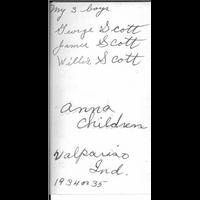 My 3 boys
George Scott
James Scott
Willis Scott
Anna
Children
Valpariso
Ind.
1934 or 35